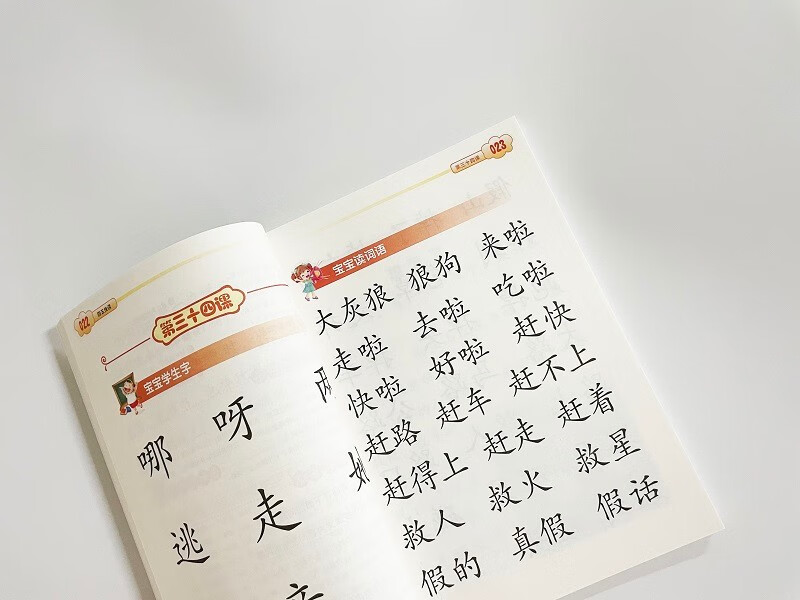 022
第三十四课
宝宝学生字
哪 呀
逃 走
023
第三十四课
宝宝读词语
大灰狼 狼狗 来啦
走啦 去啦 吃啦
快啦 好啦 赶快
赶路 赶车 赶不上
赶得上 赶走 赶着
救人 救火 救星
假的 真假 假话